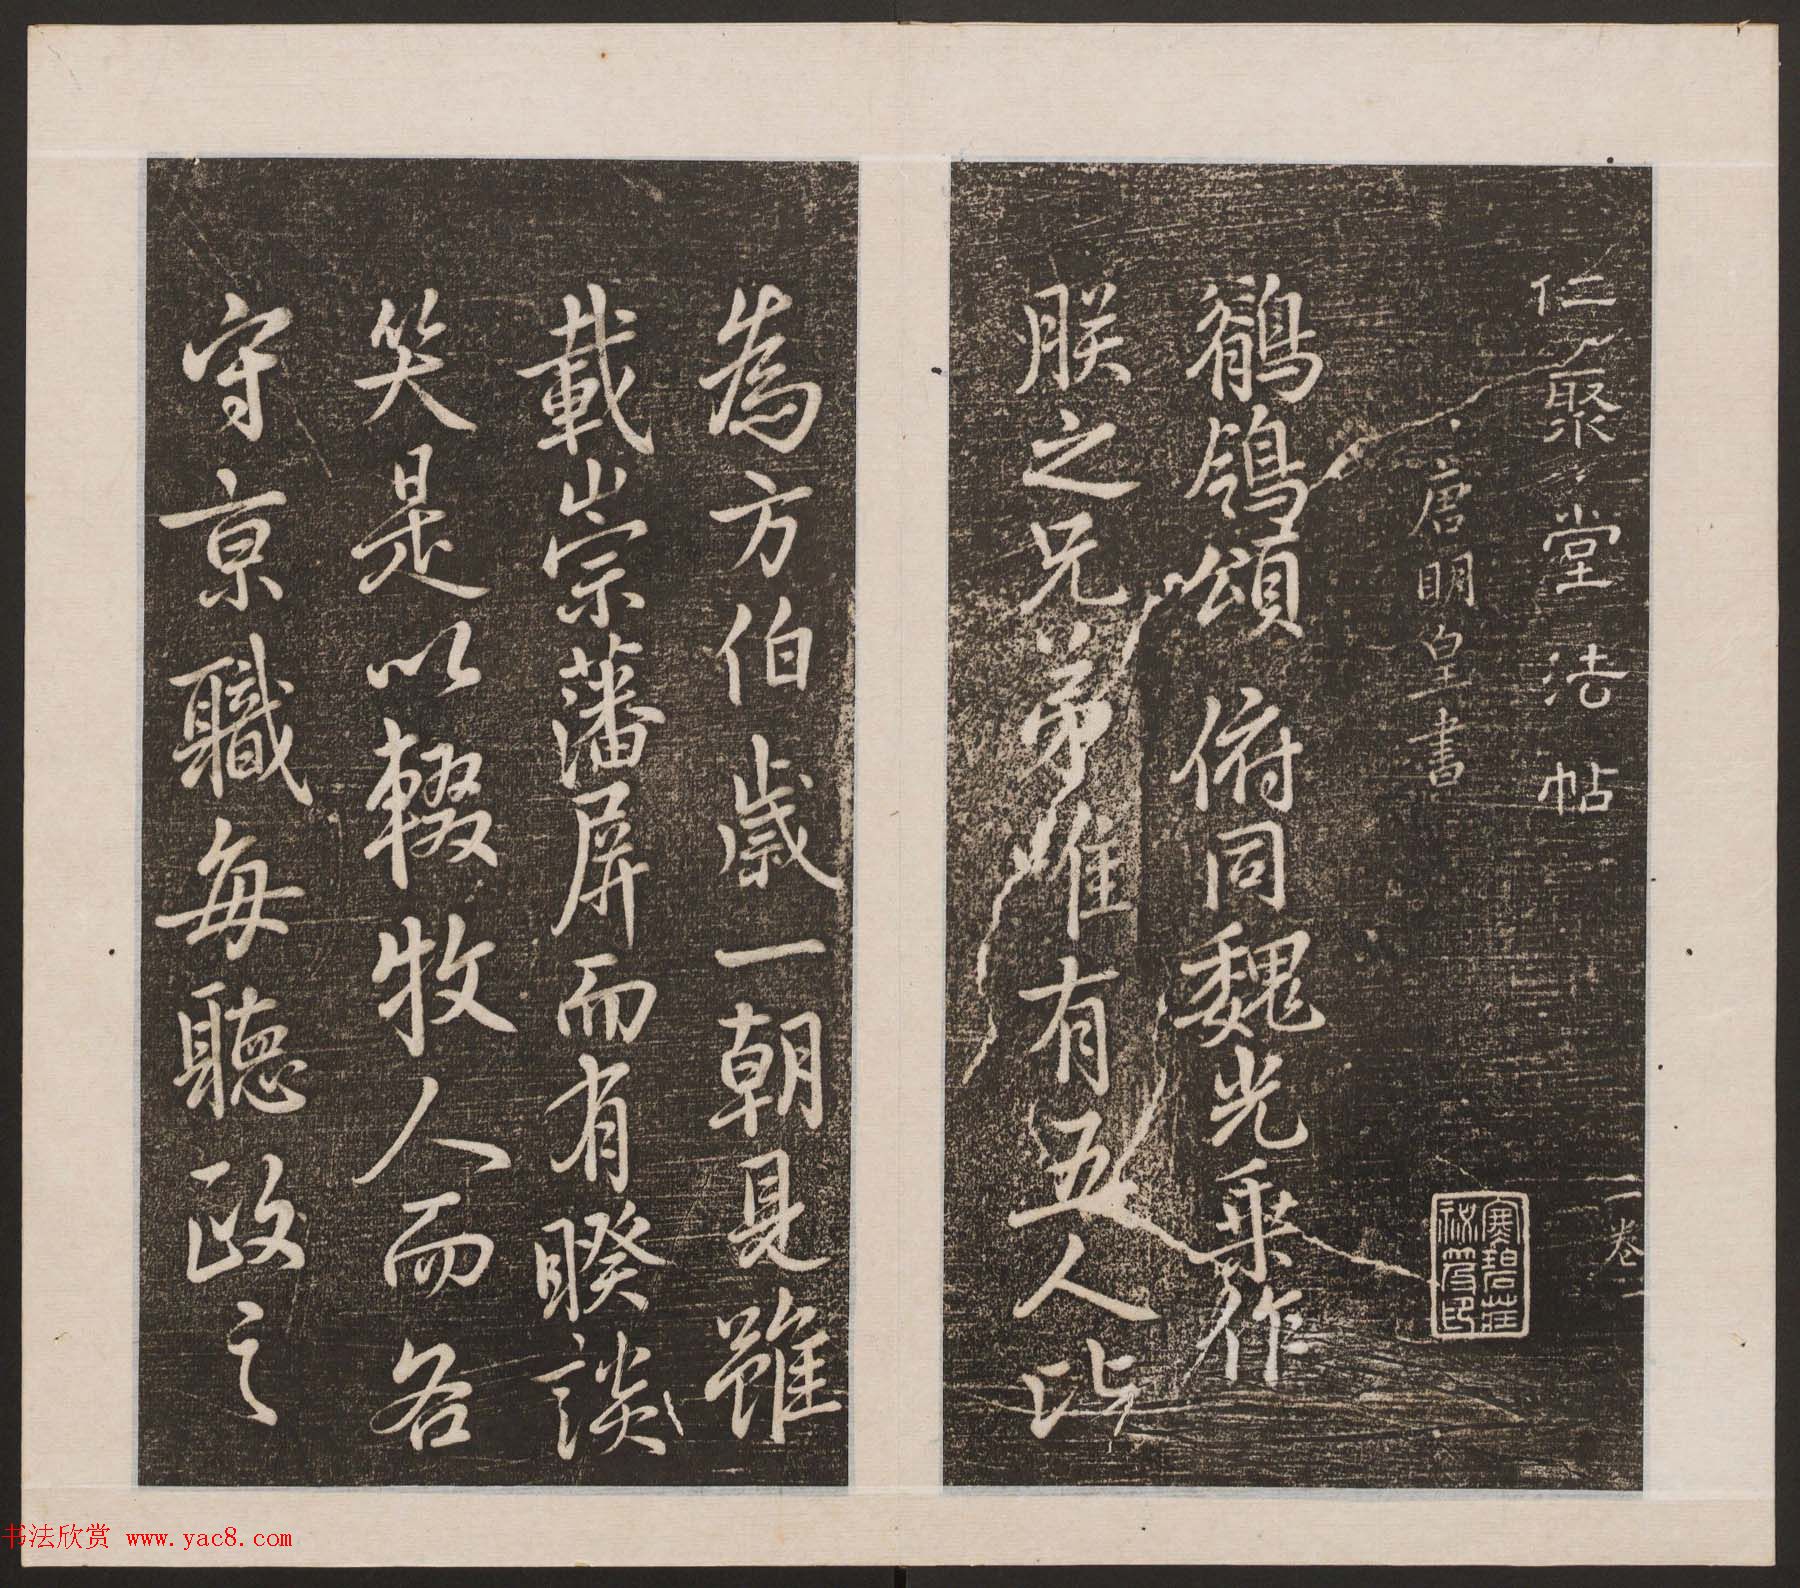 仁聚堂法帖
唐明皇書
二卷一
寒碧莊祕笈印
鶺鴒頌 俯同魏光乘作
朕之兄弟唯有五人比
為方伯歲一朝見雖
載崇藩屏而有睽談
笑是以輟牧人而各
守京職每聽政之
书法欣赏 www.yac8.com